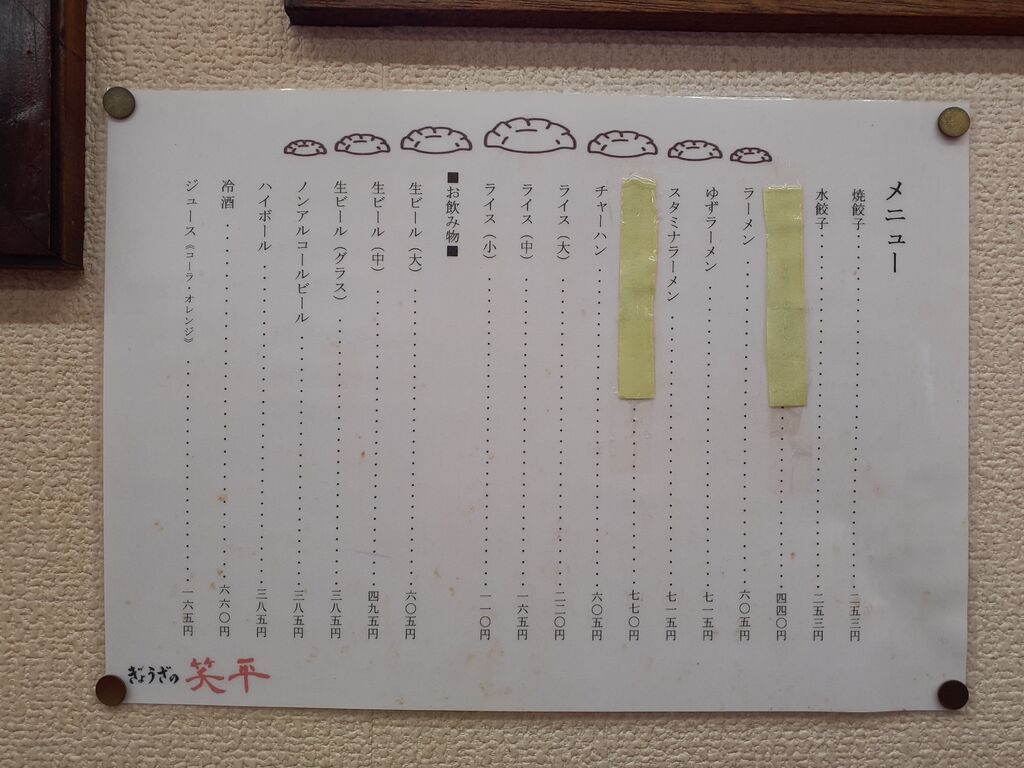 メニュー
焼餃子 二五三円
水餃子 二五三円
四四〇円
ラーメン 六〇五円
ゆずラーメン 七一五円
スタミナラーメン 七一五円
七七〇円
チャーハン 六〇五円
ライス（大） 二二〇円
ライス（中） 一六五円
ライス（小） 一一〇円
■お飲み物■
生ビール（大） 六〇五円
生ビール（中） 四九五円
生ビール（グラス） 三八五円
ノンアルコールビール 三八五円
ハイボール 三八五円
冷酒 六六〇円
ジュース《コーラ オレンジ》 一六五円
ぎょうざの 笑平